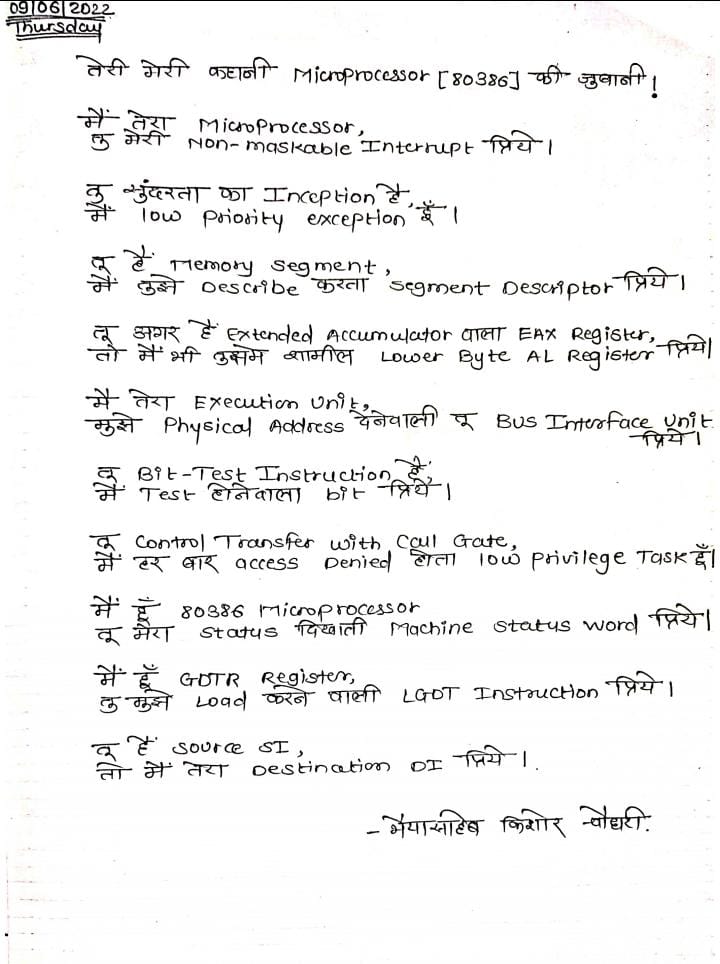 09/06/2022
Thursday
तेरी मेरी कहानी Microprocessor [80386] की जुबानी!
मैं तेरा Microprocessor,
तु मेरी Non-maskable Interrupt प्रिये।
तु सुंदरता का Inception है,
मैं low priority exception हूँ।
तू है Memory segment,
मैं तुझे Describe करता segment Descriptor प्रिये।
तू अगर है Extended Accumulator वाला EAX Register,
तो मैं भी उसमे शामील Lower Byte AL Register प्रिये।
मै तेरा Execution Unit,
मुझे Physical Address देनेवाली तू BUS Interface Unit
प्रिये।
तू Bit-Test Instruction है,
मैं Test होनेवाला bit प्रिये।
तू Control Transfer with Call Gate,
मैं हर बार access Denied होता low privilege Task हूँ।
मैं हूँ 80386 Microprocessor
तू मेरा status दिखाती Machine status word प्रिये।
मैं हूँ GDTR Register,
तु मुझे Load करने वाली LGDT Instruction प्रिये।
तू है source SI,
तो मैं तेरा Destination DI प्रिये।
-भैयासाहेब किशोर चौधरी.